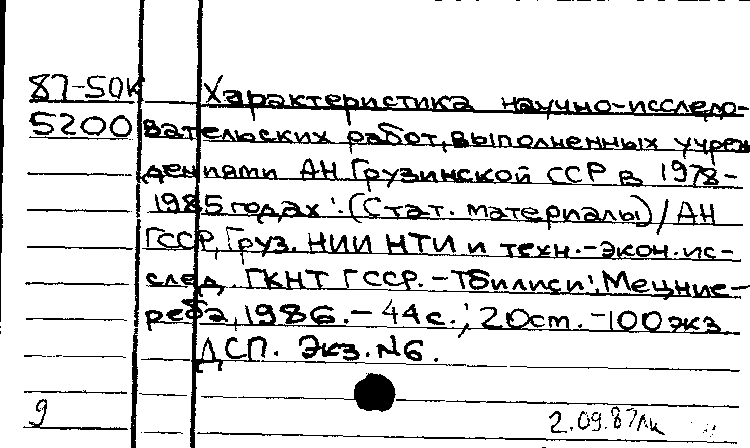 87-50К Характеристика научно-исследо-
5200 вательских работ, выполненных учреж
дениями АН Грузинской ССР в 1978-
1985 годах: (Стат. материалы) / АН
ГССР, Груз. НИИ НТИ и техн.-экон. ис-
след. ГКНТ ГССР. - Тбилиси: Мецние-
реба, 1986. - 44 с.; 20 см. - 100 экз.
ДСП. Экз. N6.
9 2.09.87